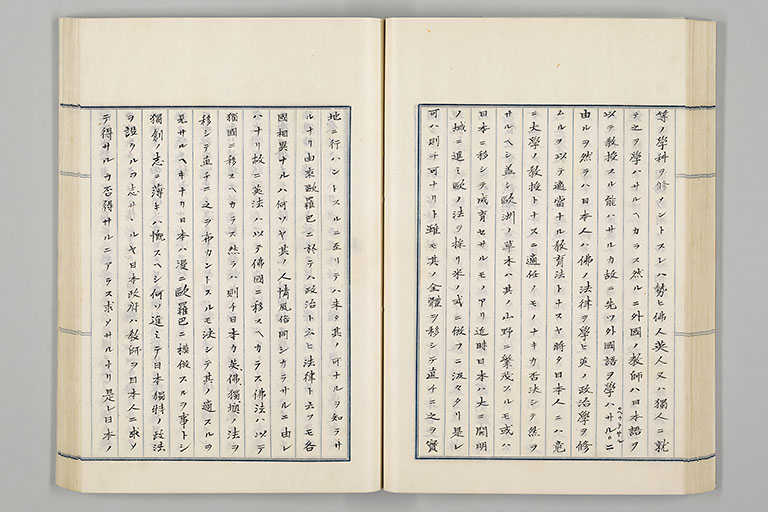 等ノ學科ヲ修メントスレハ勢ヒ佛人英人又ハ獨人ニ就
テ之ヲ學ハサルヘカラス然ルニ外國ノ教師ハ日本語ヲ
以テ教授スル能ハサルカ故ニ先ツ外國語ヲ學ハサルニ
ヘカラサル
由ルヲ然ラハ日本人ハ佛ノ法律ヲ學ヒ英ノ政治學ヲ修
ムルヲ以テ適當ナル教育法トナスヤ將タ日本人ニハ竟
ニ大學ノ教授トナスニ適任ノモノナキカ否決シテ然ラ
サルヘシ蓋シ歐洲ノ草木ハ其ノ山野ニ繁茂スルモ或ハ
日本ニ移シテ成育セサルモノアリ近時日本ハ大ニ開明
ノ域ニ進ミ歐ノ法ヲ採リ米ノ式ニ倣フニ汲々タリ是レ
可ハ則チ可ナリト雖モ其ノ全體ヲ移シテ直チニ之ヲ實
地ニ行ハントスルニ至リテハ未タ其ノ可ナルヲ知ラサ
ルナリ由來歐羅巴ニ於テハ政治ト云ヒ法律ト云フモ各
國相異ナルハ何ソヤ其ノ人情風俗同シカラサルニ由レ
ハナリ故ニ英法ハ以テ佛國ニ移スヘカラス佛法ハ以テ
獨國ニ移スヘカラス然ラハ則チ日本カ英佛獨墺ノ法ヲ
移シテ直チニ之ヲ布カントスルモ決シテ其ノ適スルヲ
見サルヘキナリ日本ハ漫ニ歐羅巴ニ模倣スルヲ事トシ
獨創ノ志ニ薄キハ慨スヘシ何ソ進ミテ日本獨特ノ政法
ヲ設クルヲ志サヽルヤ日本政府ハ教師ヲ日本人ニ求メ
テ得サルカ否得サルニアラス求メサルナリ是レ日本ノ